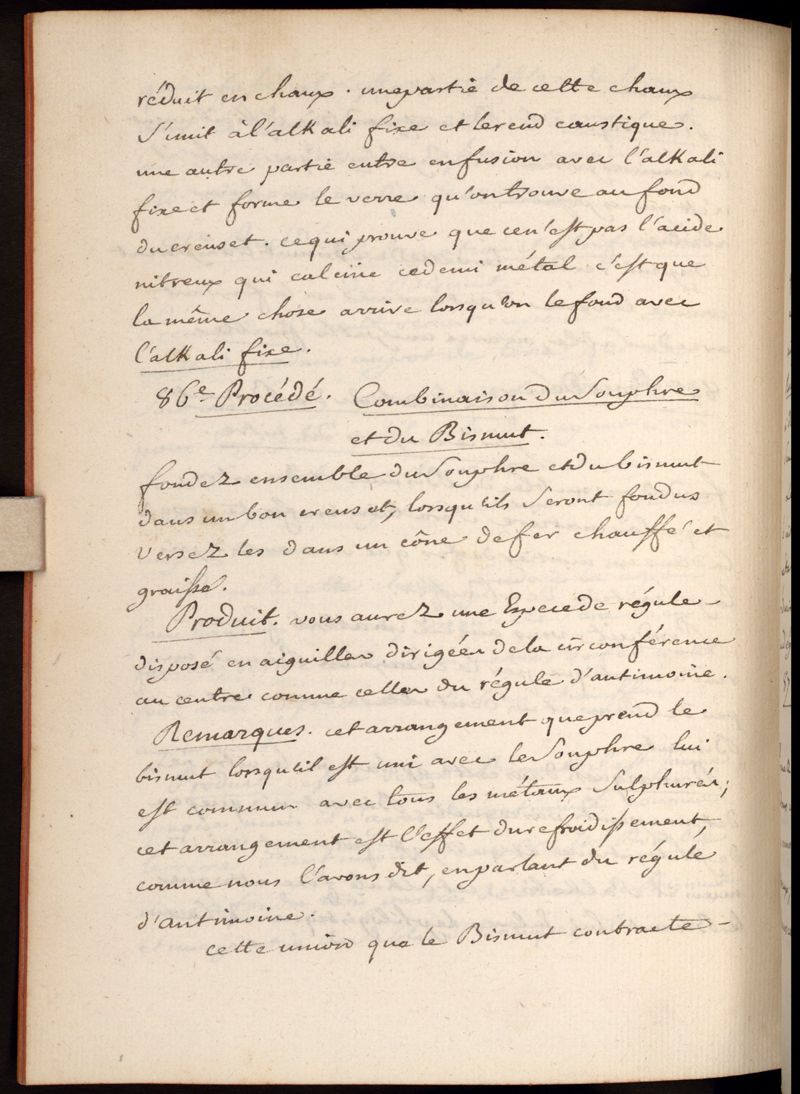 réduit en chaux. une partie de cette chaux
s'unit à l'alkali fixe et le rend caustique.
une autre partie entre en fusion avec l'alkali
fixe et forme le verre qu'on trouve au fond
du creuset. ce qui prouve que ce n'est pas l'acide
nitreux qui calcine ce demi métal c'est que
la même chose arrive lorsqu'on le fond avec
l'alkali fixe.
86e. Procédé. Combinaison du Souphre
et du Bismut.
fondez ensemble du Souphre et du bismut
dans un bon creuset, lorsqu'ils seront fondus
versez les dans un cône de fer chauffé et
graissé.
Produit. vous aurez une Espece de régule
disposé en aiguilles dirigées de la circonférence
au centre comme celles du régule d'antimoine.
Remarques. cet arrangement que prend le
bismut lorsqu'il est uni avec le Souphre lui
est commun avec tous les métaux sulphurés;
cet arrangement est l'effet du refroidissement,
comme nous l'avons dit, en parlant du régule
d'antimoine.
cette union que le Bismut contracte